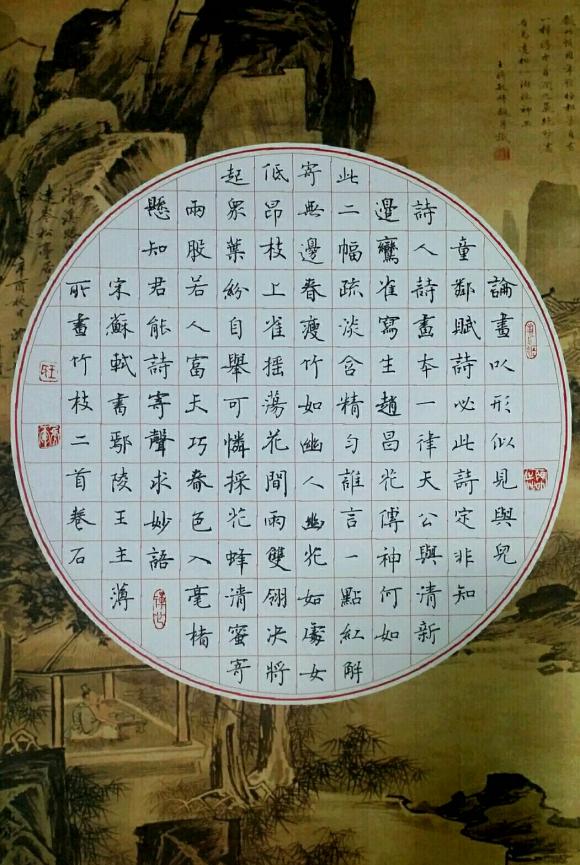 論畫以形似見與兒
童鄰賦詩必此詩定非知
詩人詩畫本一律天公與清新
邊鸞雀寫生趙昌花傳神何如
此二幅疏淡含精匀誰言一點紅解
寄無邊春瘦竹如幽人幽花如處女
低昂枝上雀摇蕩花間雨雙翎决將
起眾葉紛自舉可憐採花蜂清蜜寄
兩股若人富天巧春色入毫楮
懸知君能詩寄聲求妙語
宋蘇軾書鄢陵王主薄
所畫竹枝二首卷石